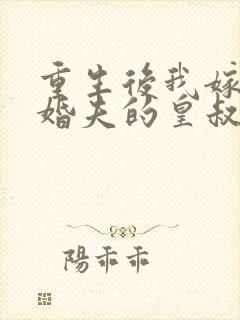 重生後我嫁
婚夫的皇叔
陽乖乖